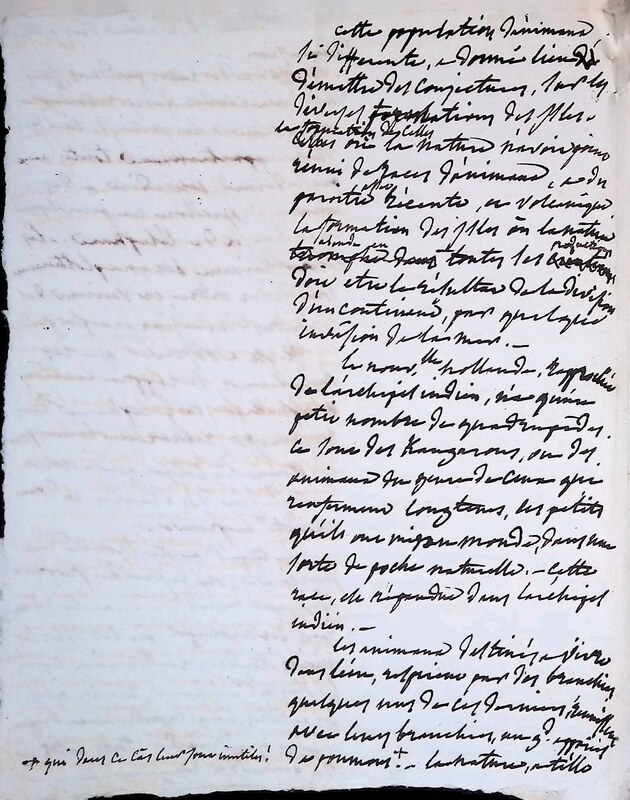 cette population d'animaux
si differente, a donné lieu
d'emettre des conjectures, sur les
diverses formations des isles.
la formation de celles
où la nature n'avoit point
reuni de races d'animaux, a du
paroitre assez recente, ou volcanique
la formation des isles où la nature
abonde en toutes les productions
doit etre le résultat de la division
d'un continent, par quelque
invasion de la mer. —
la nouvelle hollande, rapprochée
de l'archipel indien, n'a qu'un
petit nombre de quadrupedes.
ce sont des Kangarous, ou des
animaux du genre de ceux qui
renferment longtems, les petits
qu'ils ont mis au monde, dans une
sorte de poche naturelle. — cette
race, est répandue dans l'archipel
indien. —
les animaux destinés a vivre
dans l'eau, respirent par des branchies
quelques uns de ces derniers, reunissent
avec leurs branchies, un gd. appareil
de poumons! + — la nature, a-t-elle
+ qui dans ce cas leur sont inutiles!